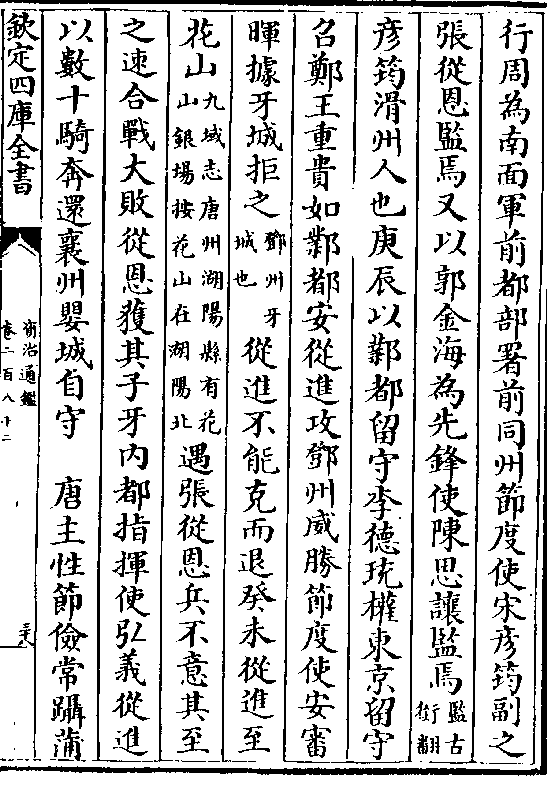 行周為南面軍前都部署前同州節度使宋彦筠副之
張從恩監焉又以郭金海為先鋒使陳思讓監焉監古銜翻
彦筠滑州人也庚辰以鄴都留守李德珫權東京留守
召鄭王重貴如鄴都安從進攻鄧州威勝節度使安審
暉據牙城拒之鄧州牙城也從進不能克而退癸未從進至
花山九域志唐州湖陽縣有花山銀場按花山在湖陽北遇張從恩兵不意其至
之速合戰大敗從恩獲其子牙内都指揮使弘義從進
以數十騎奔還襄州嬰城自守　唐主性節儉常躡蒲
欽定四庫全書
資治通鑑
卷二百八十二